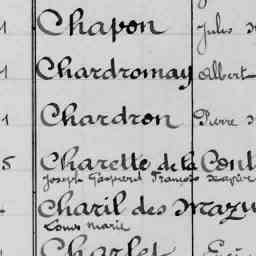 1 Chapon Jules
1 Chardromay Albert
1 Chardron Pierre
5 Charette de la Cont
Joseph François Xavier
Charil des Mazu
Louis Marie
Charlet